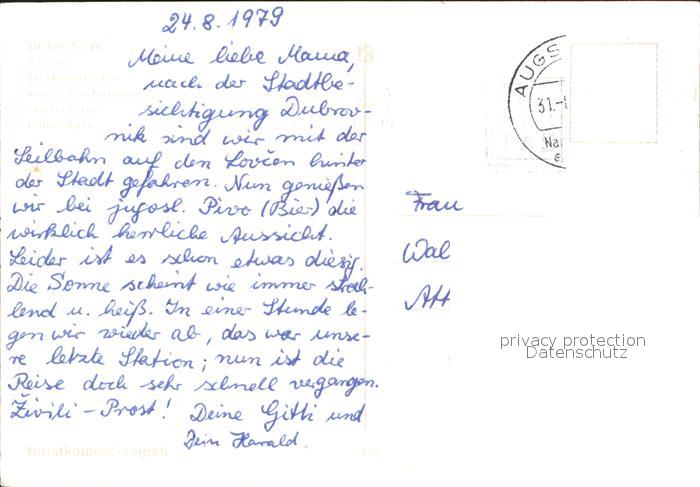 24.8.1979
Meine liebe Mama,
nach der Stadtbe-
sichtigung Dubrov-
nik sind wir mit der
Seilbahn auf den Lovćen hinter
der Stadt gefahren. Nun genießen
wir bei jugosl. Pivo (Bier) die
wirklich herrliche Aussicht.
Leider ist es schon etwas diesig.
Die Sonne scheint wie immer strah-
lend u. heiß. In einer Stunde le-
gen wir wieder ab, das war unse-
re letzte Station; nun ist die
Reise doch sehr schnell vergangen.
Živili - Prost! Deine Gitti und
Dein Harald.
DUBROVNIK
turistkomerc-zagreb
AUGS
31.-
Na
e
Frau
Wal
Att
privacy protection
Datenschutz